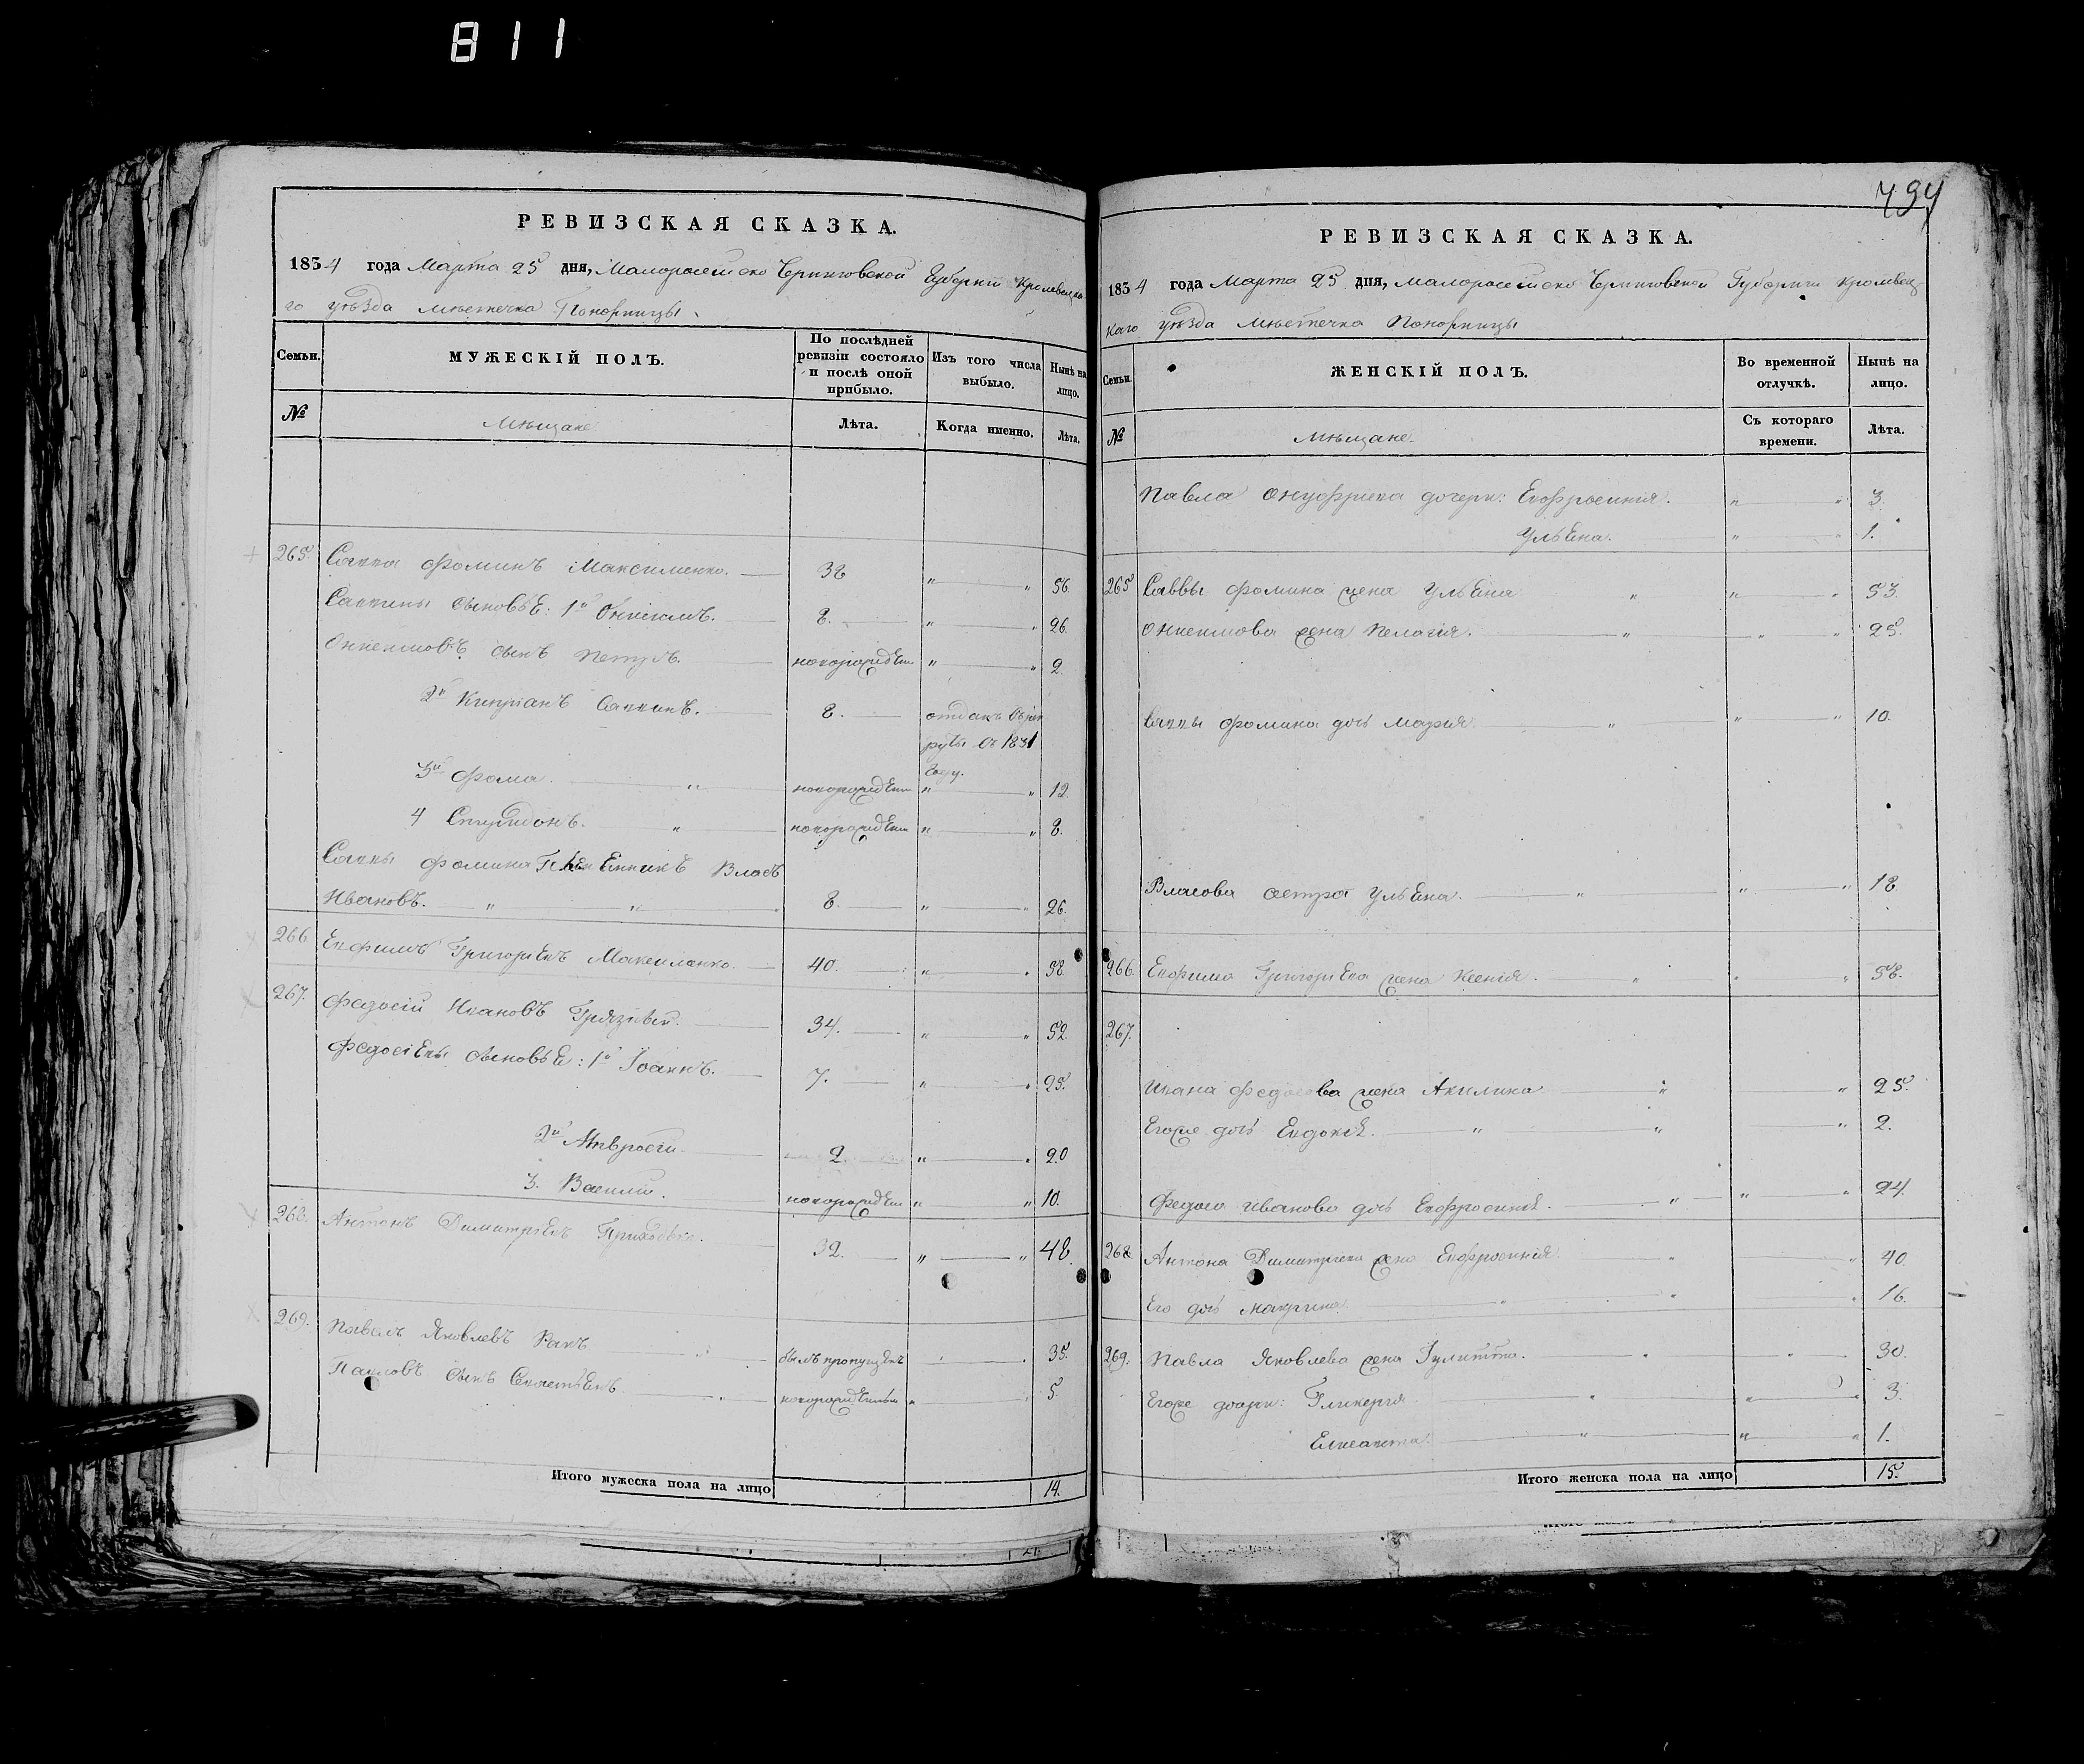 811
РЕВИЗСКАЯ СКАЗКА.
1834 года Марта 25 дня, Малоросейско Черниговской Губернии Кролевецка
го уѣзда мѣстечка Понорницы
Семьи. МУЖЕСКІЙ ПОЛЪ. По послѣдней ревизіи состояло и послѣ оной прибыло. Изъ того числа выбыло. Нынѣ на лицо.
№ Мѣщане Лѣта. Когда именно. Лѣта.
265. Савва Фоминъ Максименко. 38 " " 56
Саввины сыновье: 1й Онисимъ. 8. " " 26.
Онисимовъ сынъ Петръ. новорожденъ " " 2
2й Кипріанъ Саввинъ. 8. отданъ въ рек
руты въ 1831
году.
3й Фома. " новорожденъ " " 12.
4 Спиридонъ. " новорожденъ " " 8.
Саввы Фомина Племенникъ Власъ
Ивановъ. " " 8. " " 26.
266 Евфимъ Григорьевъ Максименко. 40. " " 58
267. Федосій Ивановъ 34. " " 52.
Федосіевы сыновье: 1й Іоаннъ. 7. " " 25.
2й Амвросій. 2. " " 20
3. Василій. новорожденъ " " 10.
268. Антонъ Димитріевъ 32. " " 48.
269. Павелъ Яковлевъ Ракъ былъ пропущенъ " " 35.
Павловъ сынъ Севастьенъ новорожденъ " " 5
Итого мужеска пола на лицо 14.
794
РЕВИЗСКАЯ СКАЗКА.
1834 года Марта 25 дня, Малоросейско Черниговской Губернии Кролевец
каго уѣзда мѣстечка Понорницы
Семьи. ЖЕНСКІЙ ПОЛЪ. Во временной отлучкѣ. Нынѣ на лицо.
№ Мѣщане. Съ котораго времени. Лѣта.
Павла Онуфриева дочери: Евфросинія. " " 3.
Ульена. " " 1.
265 Саввы Фомина жена Ульена " " " 53.
Онисимова жена Пелагія. " " " 25.
Саввы Фомина дочь Марія " " " 10.
Власова сестра Ульена. " " " 18
266. Евфима Григорьева жена Ксенія. " " " 58.
267.
Ивана Федосова жена Акилина " " 25.
Егоже дочь Евдокія. " " " 2.
Федоса Иванова дочь Евфросинія. " " " 24.
268 Антона Димитриева жена Евфросинія " " 40.
Его дочь Макрина " " " 16.
269. Павла Яковлева жена Іулитта. " " 30.
Егоже дочери: Гликерія " " " 3.
Елисавета. " " " 1.
Итого женска пола на лицо 15.
21.